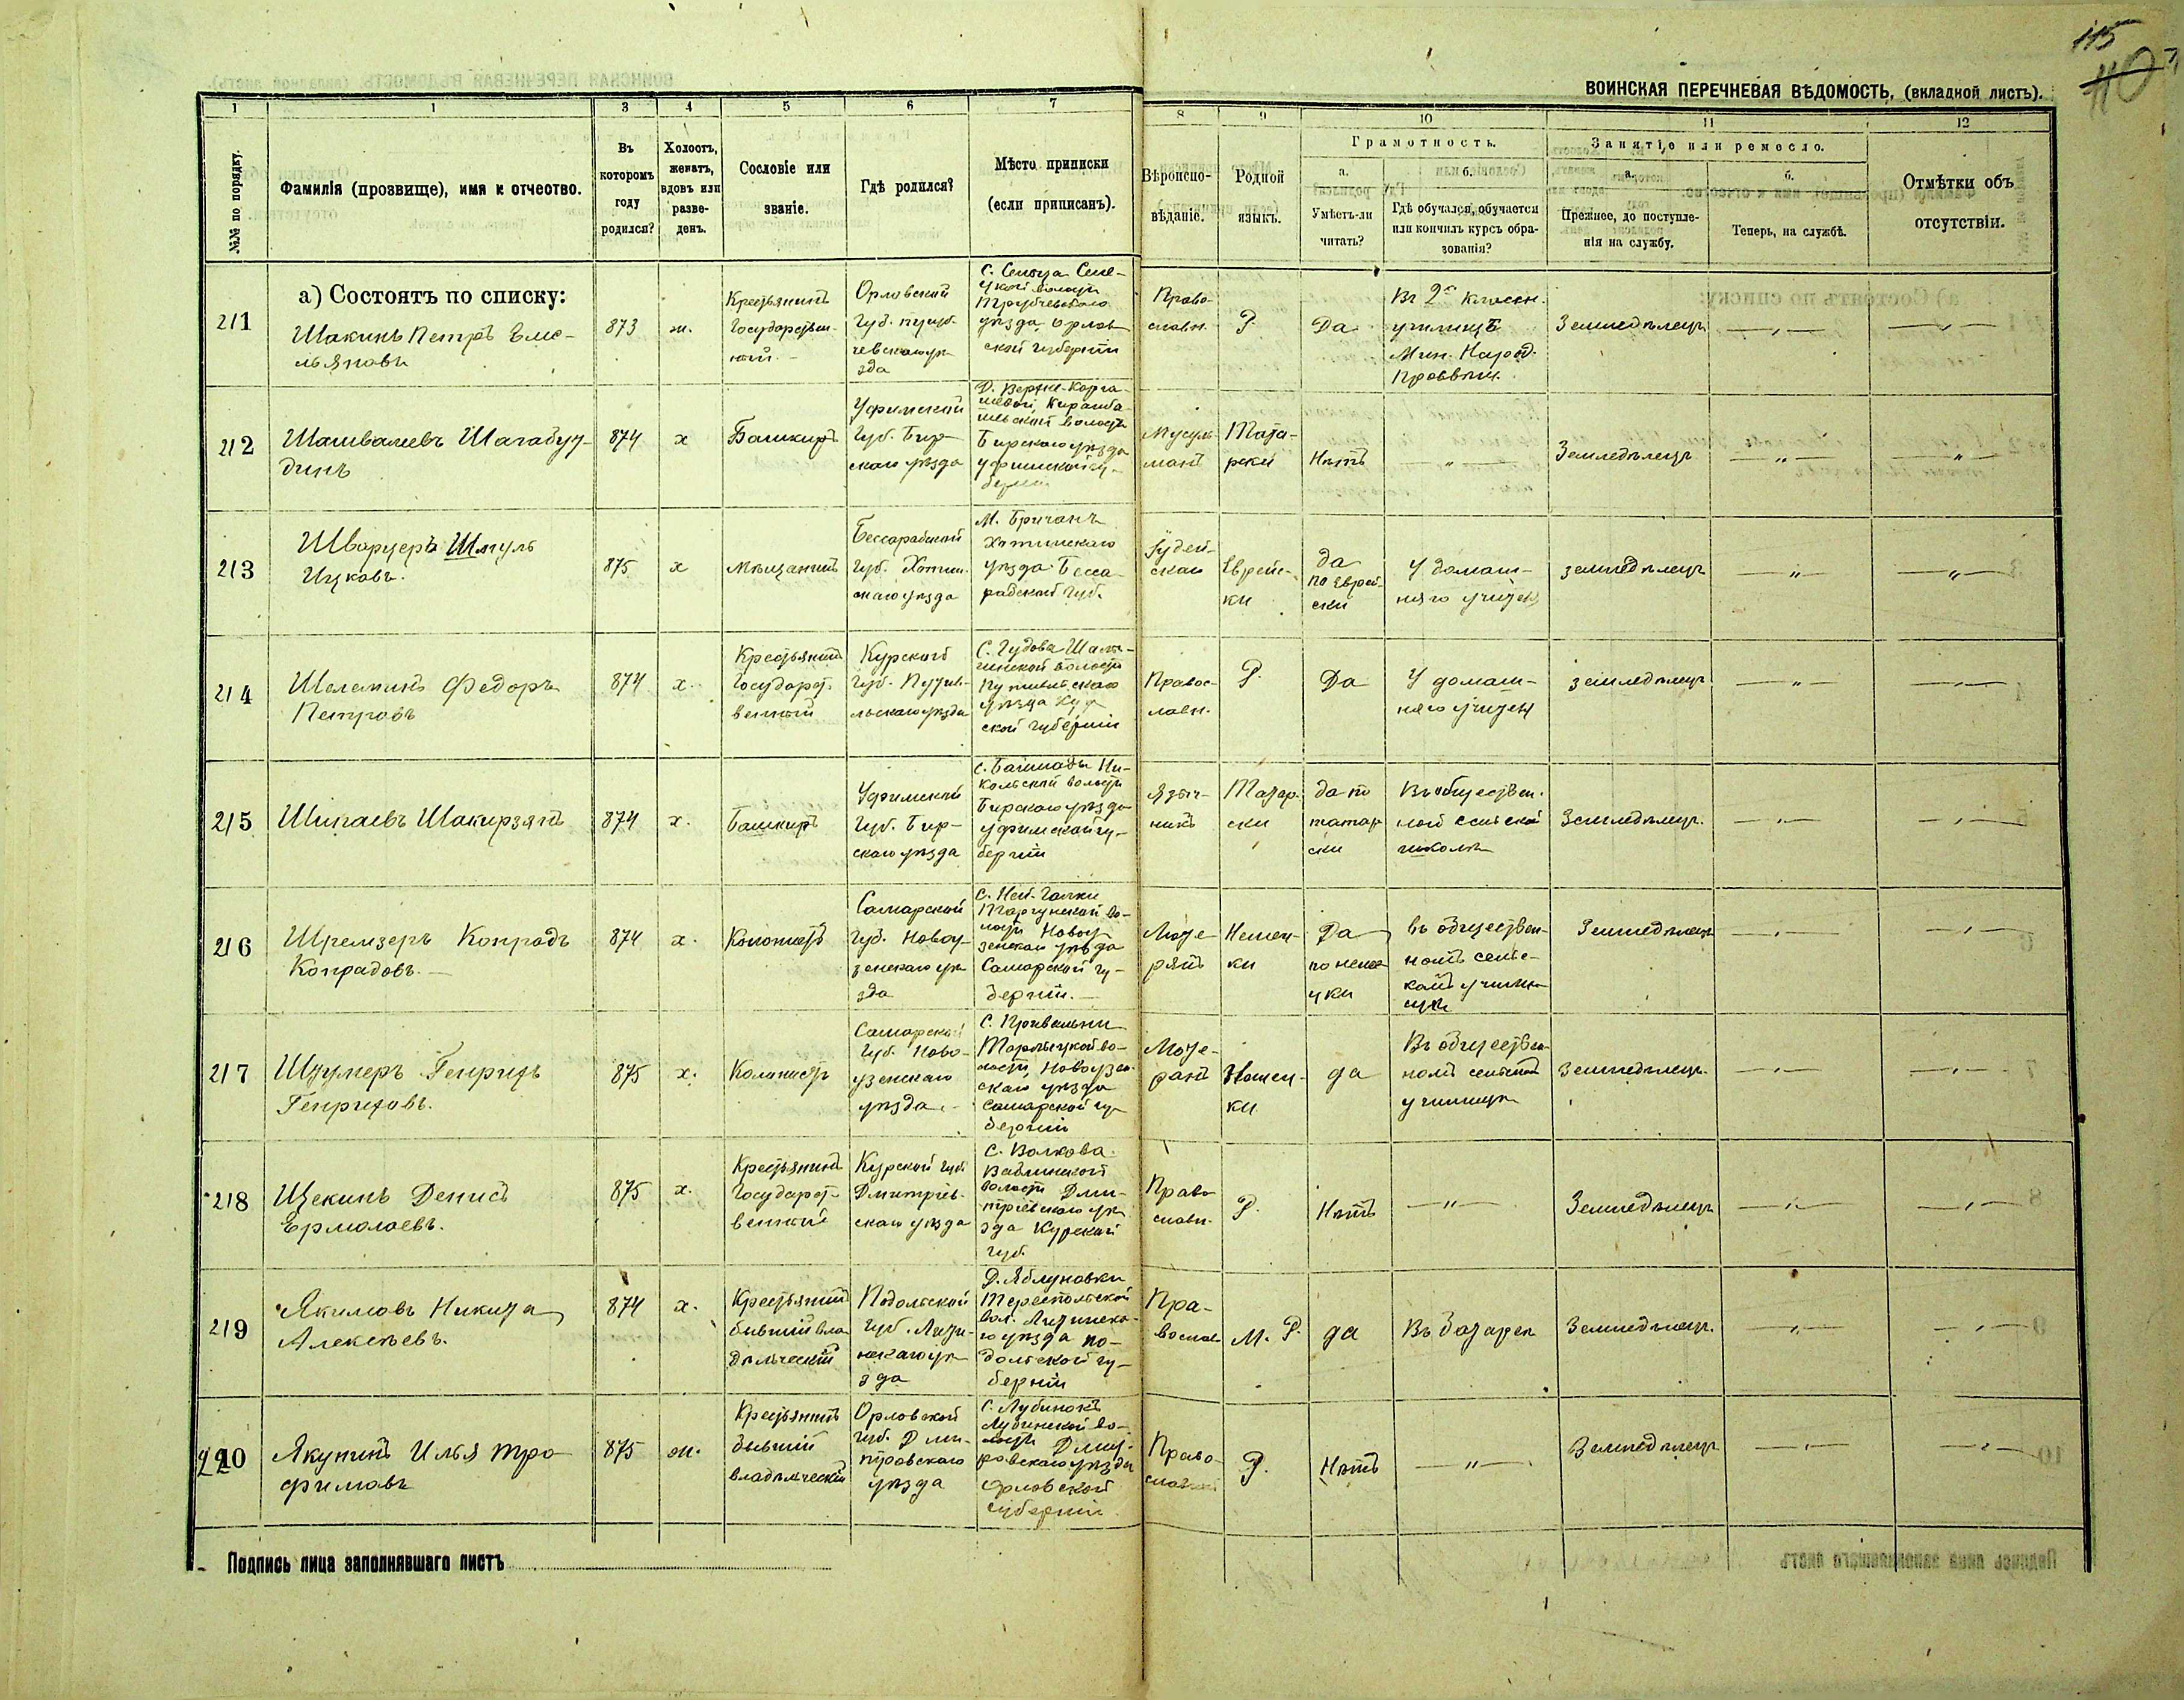 115
110
ВОИНСКАЯ ПЕРЕЧНЕВАЯ ВѢДОМОСТЬ, (вкладной листъ).
1 1 3 4 5 6 7 8 9 10 11 12
№№ по порядку.
Фамилія (прозвище), имя и отчество.
Въ
которомъ
году
родился?
Холостъ,
женатъ,
вдовъ или
разве-
денъ.
Сословіе или
званіе.
Гдѣ родился?
Мѣсто приписки
(если приписанъ).
Вѣроиспо-
вѣданіе.
Родной
языкъ.
Грамотность.
а.
Умѣетъ-ли
читать?
б.
Гдѣ обучался, обучается
или кончилъ курсъ обра-
зованія?
Занятіе или ремесло.
а.
Прежнее, до поступле-
нія на службу.
б.
Теперь, на службѣ.
Отмѣтки объ
отсутствіи.
а) Состоятъ по списку:
211
Шакинъ Петръ Еме-
льяновъ
873
ж.
Крестьянинъ
Государствен-
ный.
Орловской
Губ. Трубчевскаго уѣ
зда
Трубчевскаго
уѣзда Орлов
ской губерніи
Право
славн.
Р.
Да
Въ 2х классн.
училищѣ
Мин. Народ.
Просвѣщ.
Земледѣлецъ
— „ —
— „ —
212
Шагивалеевъ Шагабут-
динъ
874
х
Башкиръ
Уфимской
Губ. Бир-
скаго уѣзда
Бирскаго уѣзда
Уфимской гу-
берніи
Мусуль
манъ
Тата-
рски
Нѣтъ
— „ —
Земледѣлецъ
— „ —
— „ —
213
Шварцеръ Шмуль
Ицковъ.
875
х
Мѣщанинъ
Бессарабской
Губ. Хотин
скаго уѣзда
М. Бричанъ
Хотинскаго
уѣзда Бесса
рабской губ.
Іудей-
ская
Еврейс-
ки
да
по еврей
ски
У домаш-
няго учител
земледѣлецъ
— „ —
— „ —
214
Шелеминъ Федоръ
Петровъ
874
х.
Крестьянинъ
Государст-
венный
Курской
Губ. Путив-
льскаго уѣзда
Путивльскаго
уѣзда Кур
ской губерніи
Правос-
лавн.
Р.
Да
У домаш-
няго учител
земледѣлецъ
— „ —
— „ —
215
Шипаевъ Шакирзянъ
874
х.
Башкиръ
Уфимской
Губ. Бир-
скаго уѣзда
кольской волости
Бирскаго уѣзда
Уфимской гу-
берніи
Языч-
никъ
Татар
ски
да по
татар
ски
Въ обществен.
ной сельской
школѣ
Земледѣлецъ.
— „ —
— „ —
216
Шремзеръ Конрадъ
Конрадовъ. —
874
х.
Колонистъ
Самарской
Губ. Новоу-
зенскаго уѣ
зда
лости Новоу
зенскаго уѣзда
Самарской гу-
берніи. —
Люте-
ранъ
Немец-
ки
Да
по неме
цки
въ обществен-
номъ сельс-
комъ учили-
щѣ
Земледѣлецъ
— „ —
— „ —
217
Штумперъ Генрихъ
Генриховъ.
875
х.
Колонистъ
Самарской
Губ. Ново-
узенскаго
уѣзда. -
С. Привальни
Тарлыцкой во-
лости Новоузен
скаго уѣзда
Самарской гу
берніи
Люте-
ранъ
Немец-
ки
да
Въ обществен-
номъ сельском
училищѣ
Земледѣлецъ.
— „ —
— „ —
218
Щекинъ Денисъ
Ермолаевъ.
875
х.
Крестьянинъ
Государст-
венный
Курской губ.
Дмитріев-
скаго уѣзда
С. Волкова
волости Дми-
тріевскаго уѣ
зда Курской
губ.
Право
славн.
Р.
Нѣтъ
— „ —
Земледѣлецъ
— „ —
— „ —
219
Якимовъ Никита
Алексѣевъ.
874
х.
Крестьянинъ
бывшій вла
дѣльческій
Подольской
Губ. Лити-
нскаго уѣ
зда
Д. Яблуновки
Терестольской
вол. Литинска-
го уѣзда По-
дольской гу-
берніи
Пра-
вослав
М. Р.
да
Въ батареѣ
Земледѣлецъ.
— „ —
— „ —
220
Якунинъ Илья Тро
фимовъ
875
ж.
Крестьянинъ
бывшій
владѣльческій
Орловской
губ. Дми-
тровскаго
уѣзда
С. Лубянокъ
Лубянской во-
лости Дмит-
ровскаго уѣзда
Орловской
губерніи
Право
славный
Р.
Нѣтъ
— „ —
Земледѣлецъ
— „ —
— „ —
Подпись лица заполнявшаго листъ